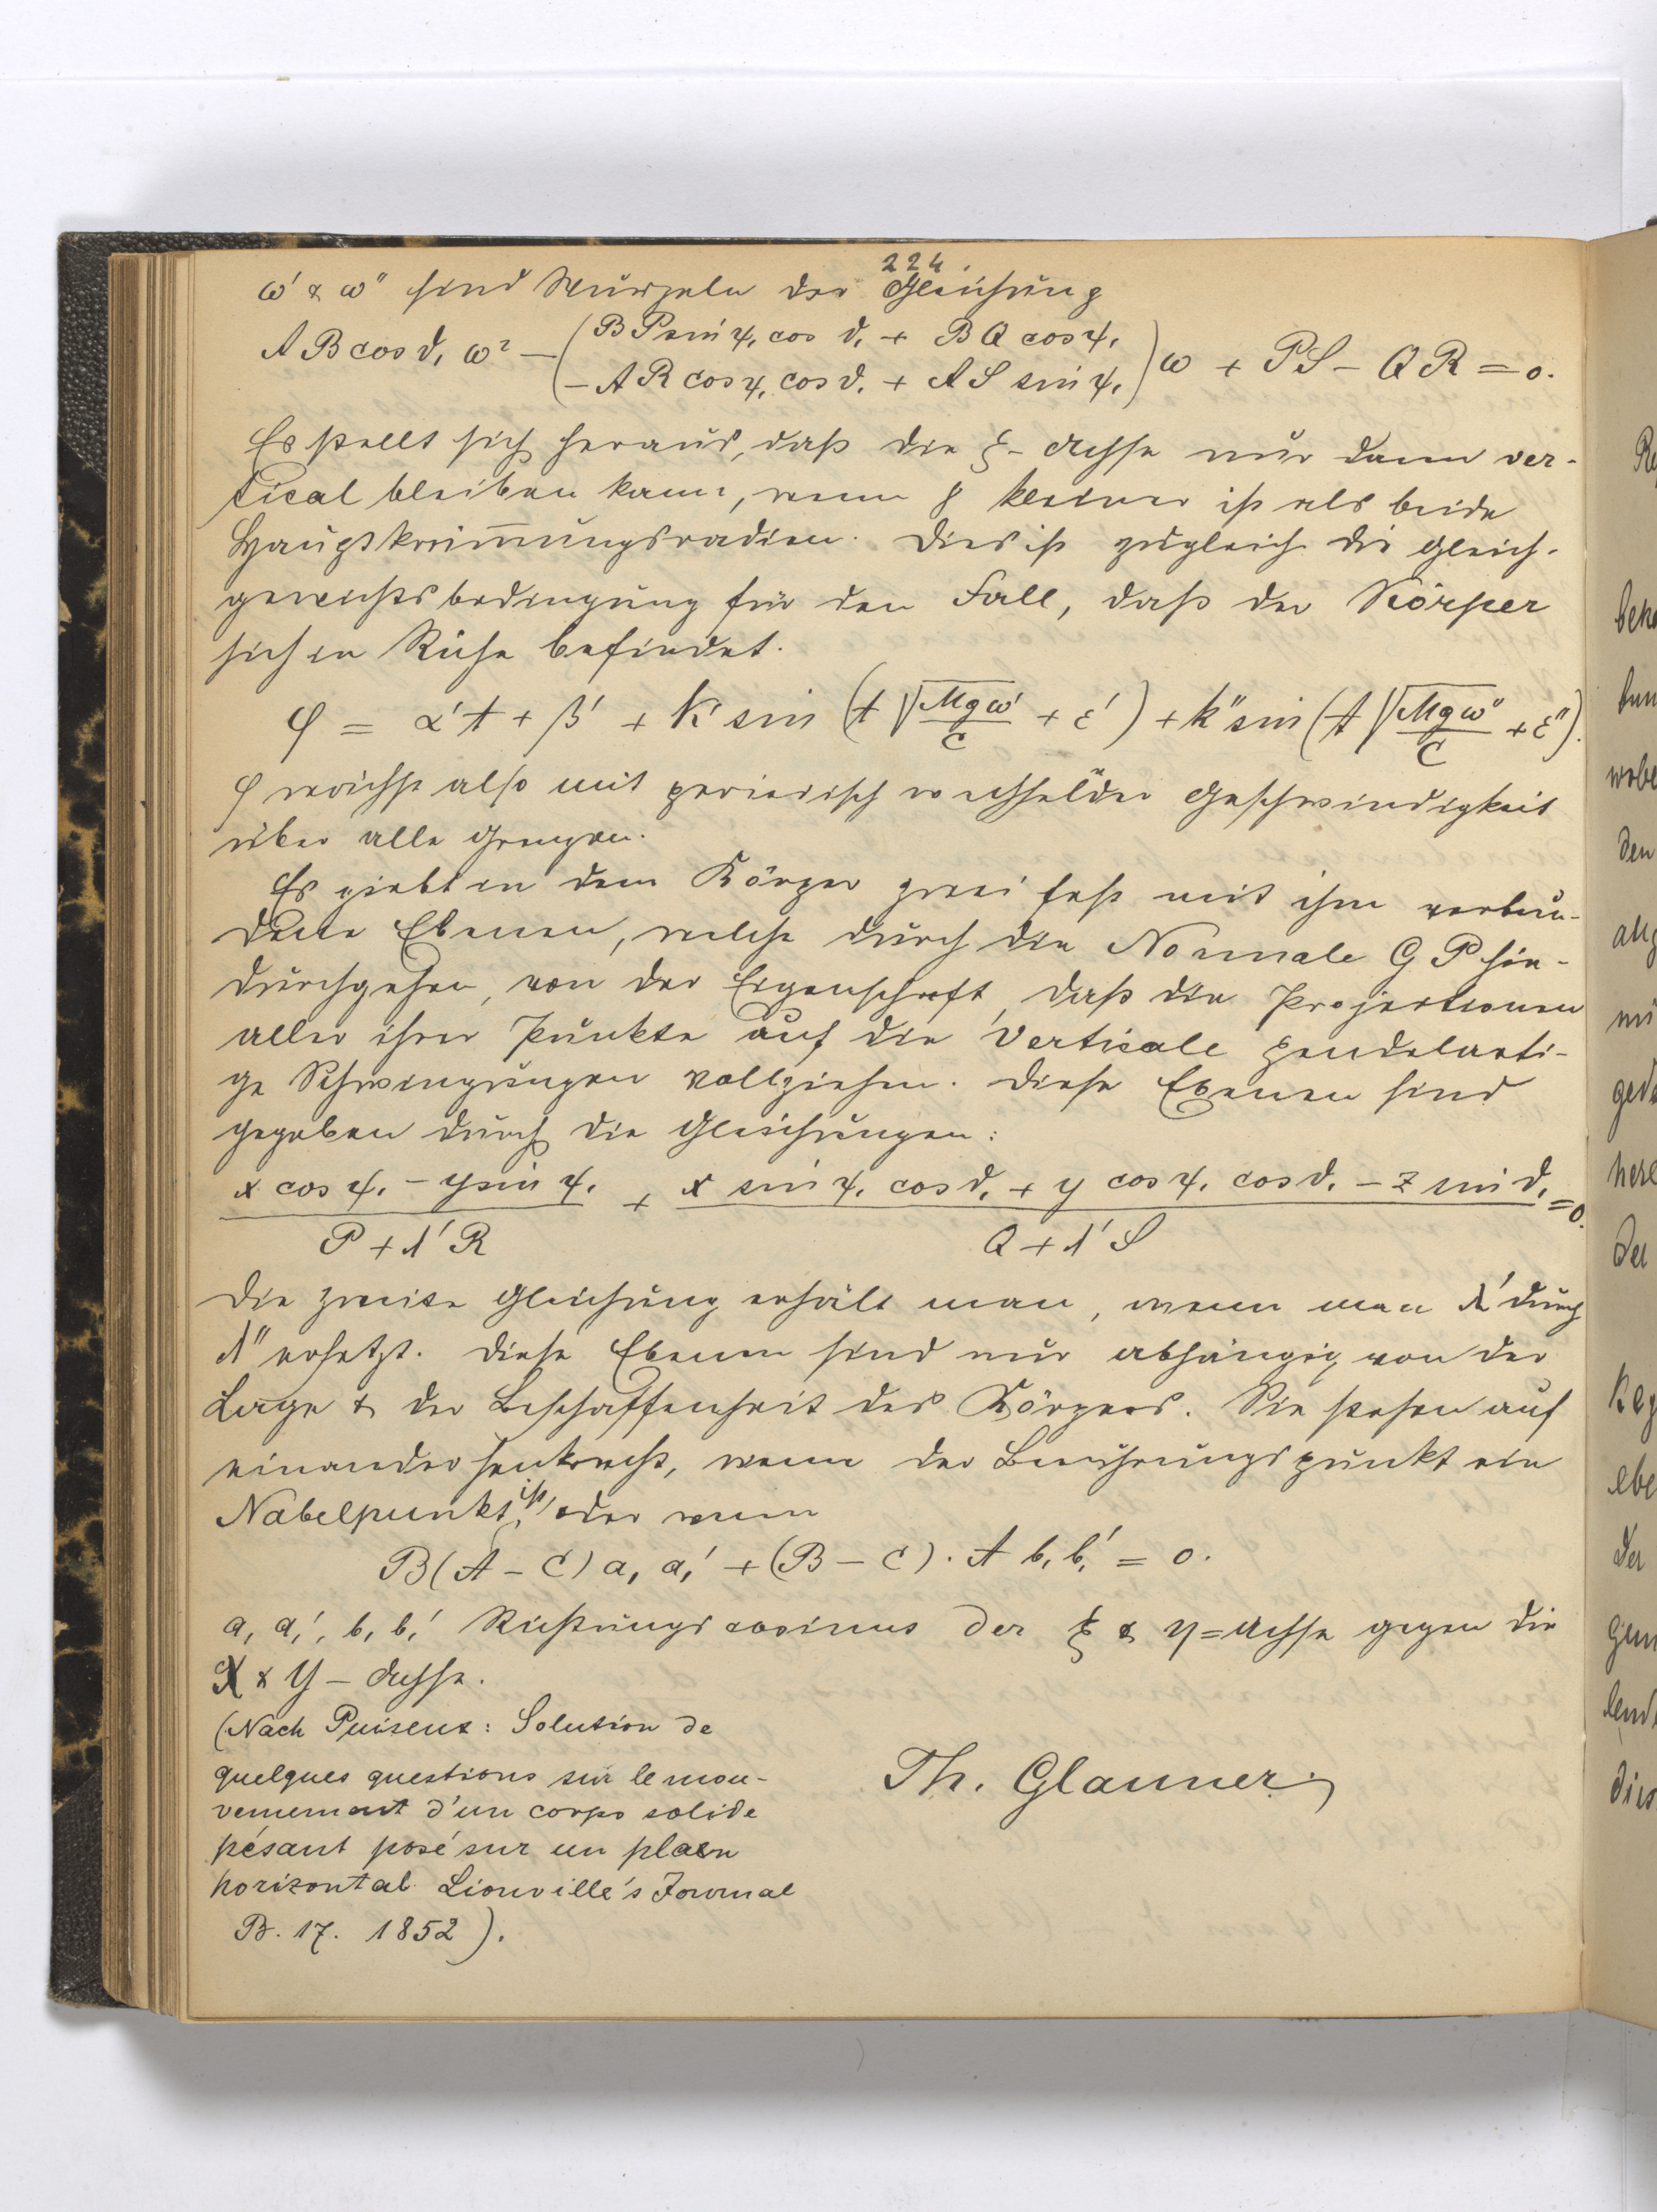 224.
ω' & ω" sind Wurzeln der Gleichung
AB cos ϑ₁ ω² − (BP sin ψ₁ cos ϑ₁ + BQ cos ψ₁
− AR cos ψ₁ cos ϑ₁ + AS sin ψ₁) ω + PS − QR = 0.
Es stellt sich heraus, daß die ξ-Achse nur dann ver-
tical bleiben kann, wenn kleiner ist als beide
Hauptkrüm̅ungsradien. Dies ist zugleich die Gleich-
gewichtsbedingung für den Fall, daß der Körper
sich in Ruhe befindet.
φ = α't + β' + K' sin (t √Mgω'/C + ε') + k" sin (t √Mgω"/C + ε").
φ wächst also mit periodisch wechselnder Geschwindigkeit
über alle Grenzen.
Es giebt in dem Körper zwei fest mit ihm verbun-
dene Ebenen, welche durch die Normale GP hin-
durchgehen, von der Eigenschaft, daß die Projectionen
aller ihrer Punkte auf die Verticale pendelarti-
ge Schwingungen vollziehen. Diese Ebenen sind
gegeben durch die Gleichungen:
(x cos ψ₁ − y sin ψ₁)/(P + λ'R) + (x sin ψ₁ cos ϑ₁ + y cos ψ₁ cos ϑ₁ − z sin ϑ₁)/(Q + λ'S) = 0.
Die zweite Gleichung erhält man, wenn man λ' durch
λ" ersetzt. Diese Ebenen sind nur abhängig von der
Lage & der Beschaffenheit des Körpers. Sie stehen auf
einander senkrecht, wenn der Berührungspunkt ein
Nabelpunkt ist, oder wenn
B(A − C) a₁ a₁' + (B − C) . A b₁ b₁' = 0.
a₁ a₁', b₁ b₁' Richtungscosinus der ξ & η = Achse gegen die
X & Y − Achse.
(Nach Puiseux: Solution de
quelques questions sur le mou-
vement d'un corps solide
pésant posé sur un plan
horizontal. Liouville's Journal
B. 17. 1852).
Th. Glauner.